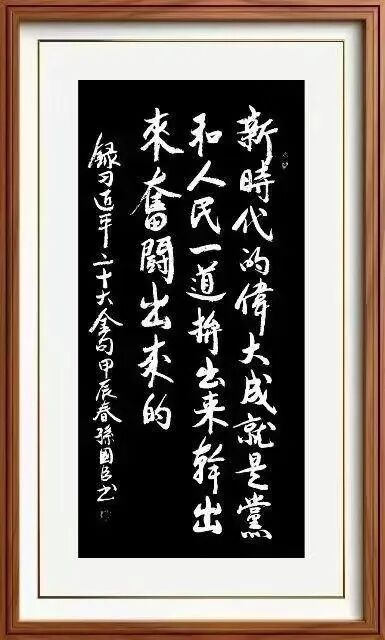 新時代的偉大成就是黨
和人民一道拚出来幹出
來奮鬪出來的
録习近平二十大金句甲辰春孫國良书